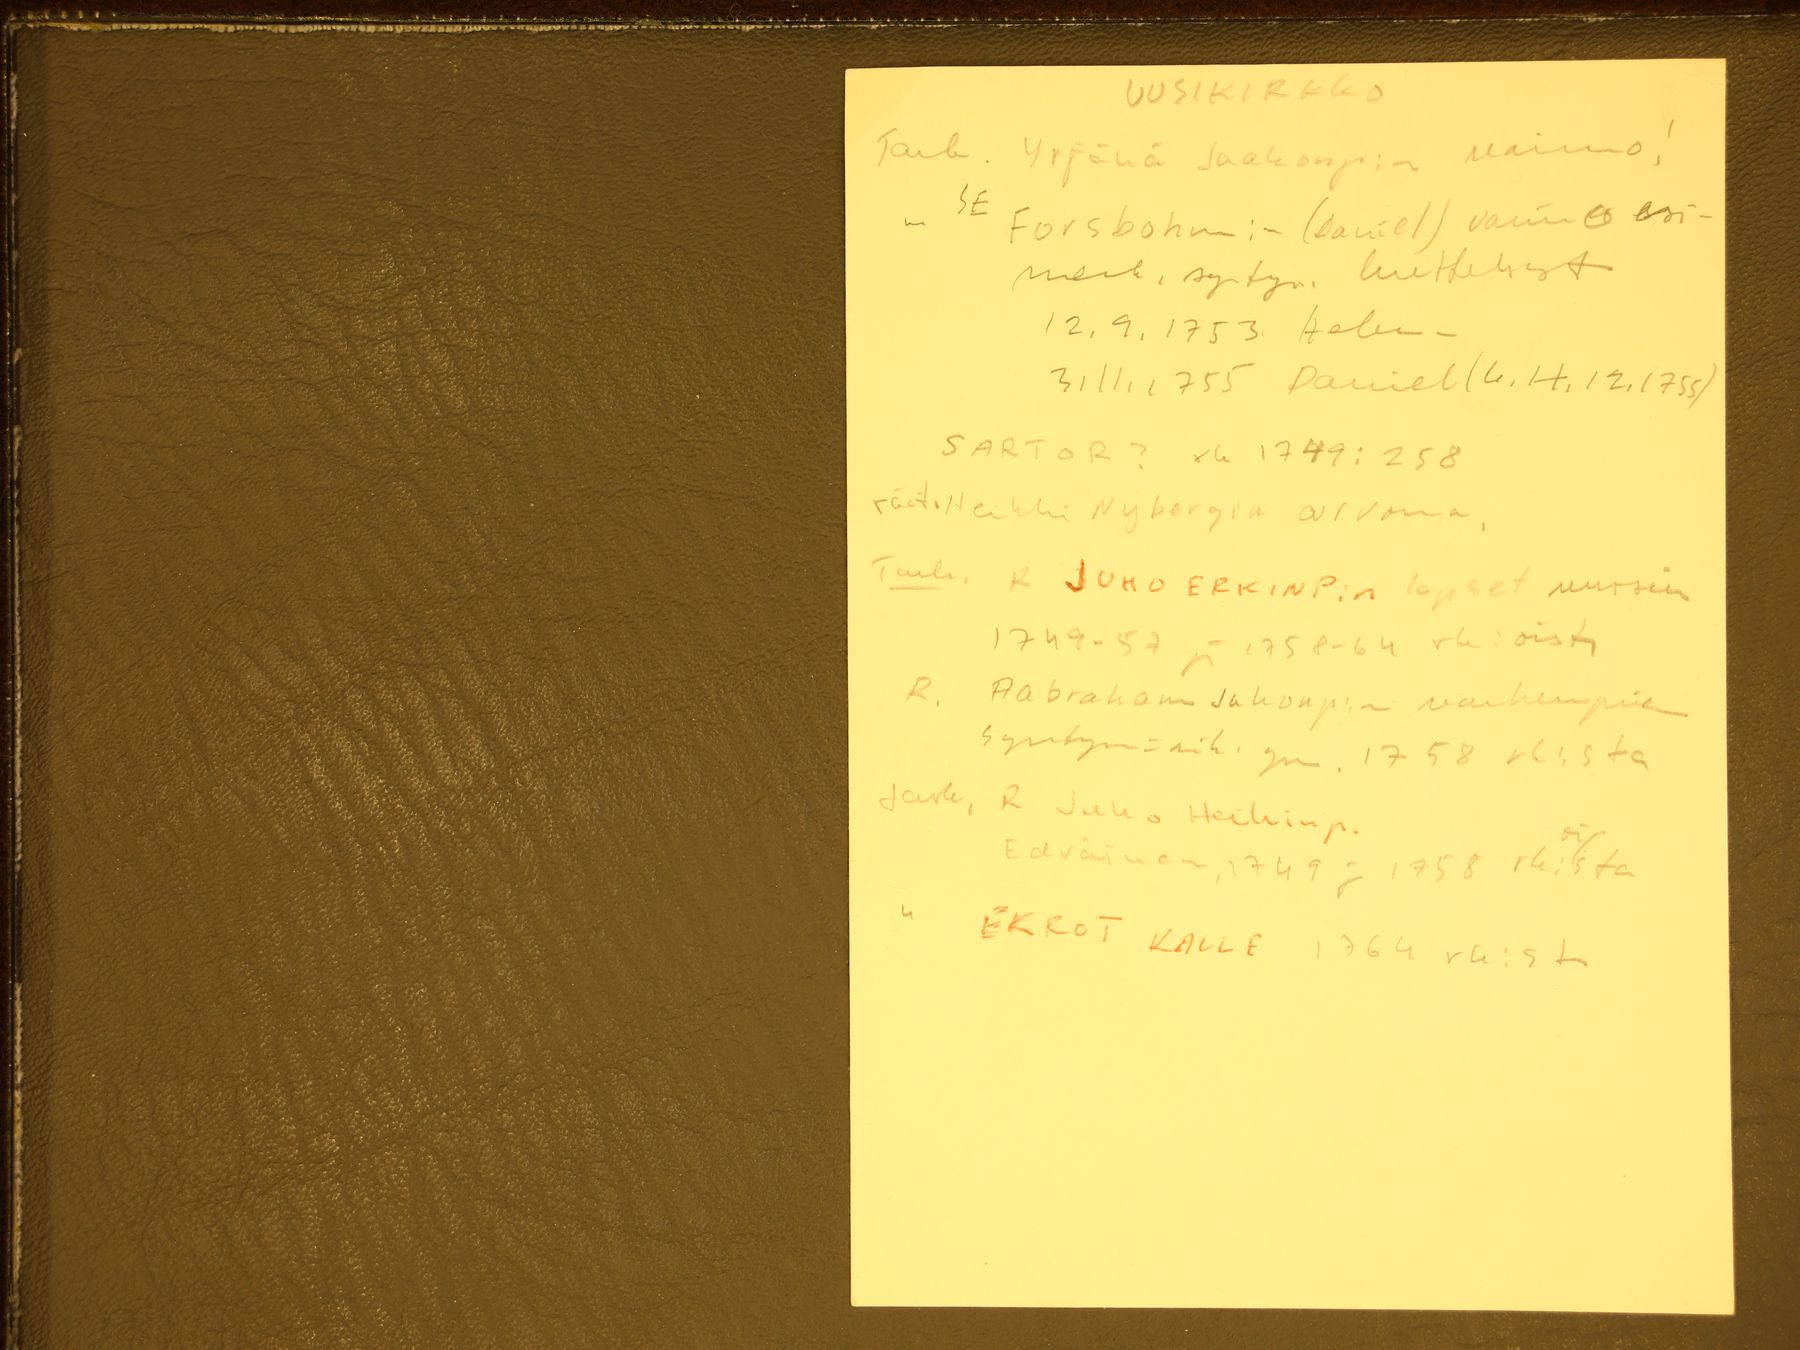 UUSIKIRKKO
Tark. Yrjänä Jaakonp:n vaimo!
" SE Forsbohm:n (Daniel) vaimo esi-
merk. syntyn. luettelost
12.9.1753 Helen
3.11.1755 Daniel (k. 14.12.1755)
SARTOR? rk 1749:258
räät. Heikki Nybergin arvoma.
Tark. R JUHO ERKINP:n lapset uusiin
1749-57 ja 1758-64 rk:oist
R. Aabraham Juhonp:n vanhempien
syntymäaik. ym. 1758 rk:sta
Tark. R Juho Heikinp.
Edväinen, 1749 ja 1758 rk:oista
" EKROT KALLE 1764 rk:st